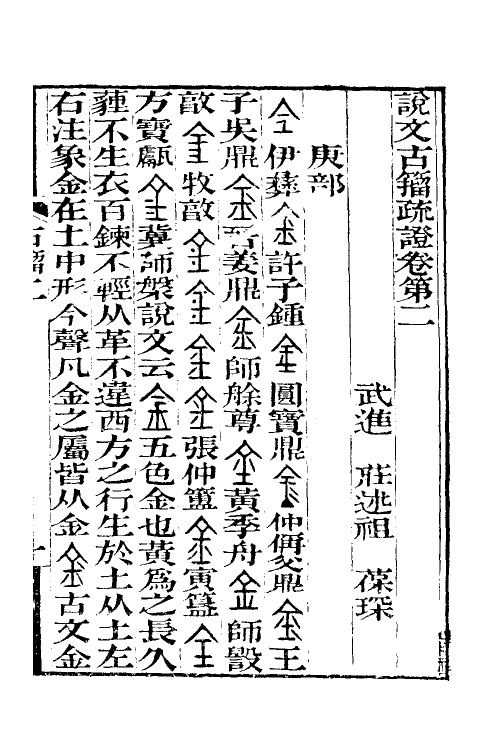 說文古籀疏證卷第二
武進 莊述祖 葆琛
庚部
伊彝 許子鍾 圓寶鼎 仲偁父鼎 王
子吳鼎 晉姜鼎 師艅尊 黃季舟 師毀
敔 牧敔 張仲簠 寅簋
方寶甗 冀師槃說文云金五色金也黃爲之長久
薶不生衣百鍊不輕从革不違西方之行生於土从土左
右注象金在土中形今聲凡金之屬皆从金 古文金
古籀二